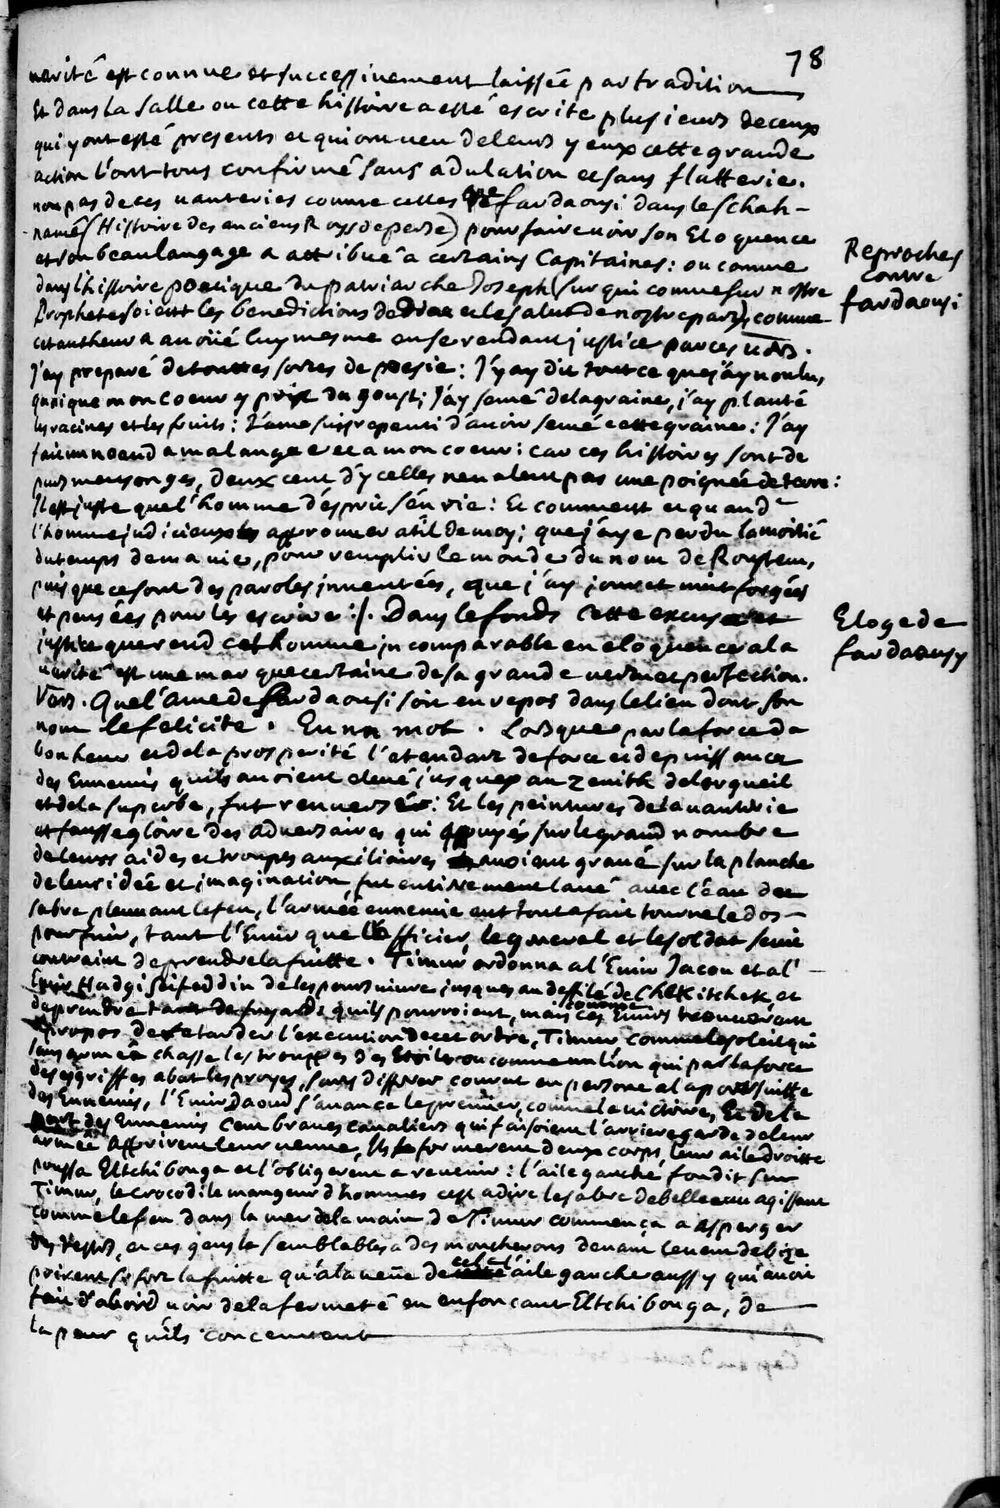 78
verité est connue et successivement laissée par tradition
Et dans la salle ou cette histoire a esté escrite plusieurs de ceux
qui y ont esté presents et qui ont veu de leurs yeux cette grande
action l'ont tous confirmé sans adulation et sans flatterie.
non pas de ces vanteries comme celles que fardaousi dans le schah-
-namé (Histoire des anciens Roys de perse) pour faire voir son Eloquence
et son beau langage a attribué a certains Capitaines: ou comme
dans l'histoire poetique du patriarche Joseph (sur qui comme sur nostre
Prophete soient les benedictions de dieu et le salut de nostre part), comme
cet autheur a avoüé luy mesme en se rendant justice par ces vers.
J'ay preparé de toutes sortes de poesie: J'y ay dit tout ce que j'ay voulu,
quoique mon coeur y prist du goust; J'ay semé de la graine, j'ay planté
les racines et les fruits: Je me suis repenti d'avoir semé cette graine: J'ay
fait un noeud a ma langue et a mon coeur: car ces histoires sont de
purs mensonges, deux cent d'ycelles ne valent pas une poignée de terre:
Il est juste que l'homme d'esprit s'en rie: Et comment et quand
l'homme judicieux approuver at'il de moy; que j'aye perdu la moitié
du temps de ma vie, pour remplir le monde du nom de Roustem,
puis que ce sont des paroles inventées, que j'ay jour et nuit forgées
et pensées pour les escrire :/. Dans le fonds cette excuse et
justice que rend cet homme incomparable en eloquence a la
verité est une marque certaine de sa grande vertu et perfection.
Vers. Que l'ame de fardaousi soit en repos dans le lien dont son
nom le felicite. En un mot. Lorsque par la force du
bonheur et de la prosperité l'etendart de force et de puissance
des Ennemis qu'ils avoient elevé jusques au zenith de lorgueil
et de la superbe, fut renversé: Et les peintures de la vanterie
et fausse gloire des adversaires qui appuyés sur le grand nombre
de leurs aides et troupes auxiliaires avoient gravé sur la planche
de leur idée et imagination fut entierement lavé avec l'eau du
sabre pleuvant le feu, l'armée ennemie eut tout a fait tourné le dos
pour fuir, tant l'Emir que l'officier, le general et le soldat se vit
contraint de prendre la fuitte. Timur ordonna a l'Emir Jacou et a l'
Emir Hadgi Seifeddin de les poursuivre jusques au defilé de Chekitchek et
de prendre tant de fuyards qu'ils pourroient, mais comme ces Emirs trouverent
apropos de retarder l'execution de cet ordre, Timur comme le soleil qui
sans armée chasse les troupes des Etoiles ou comme un lion qui par la force
de ses griffes abat les proyes, sans differer courut en persone a la poursuitte
des Ennemis, l'Emir Daoud s'avança le premier, comme le victoires, Et de la
part des Ennemis cent braves cavaliers qui faisoient l'arrieregarde de leur
armée apprirent leur venue, Ils se formerent deux corps, leur aile droitte
poussa Eltchi bouga et l'obligerent a revenir: l'aile gauche fondit sur
Timur, le crocodile mangeur d'hommes cest a dire le sabre de belle eau agissant
comme le feu dans la mer de la main de Timur commença a asperger
et ces gens la semblables a des moucherons devant le vent de bize
prirent si fort la fuitte qu'a la veüe de cela l'aile gauche aussy qui avoit
fait d'abord voir de la fermeté en enfonçant Eltchi bouga, de
la peur qu'ils conceurent
Reproches
contre
fardaousi
Eloge de
fardaousy